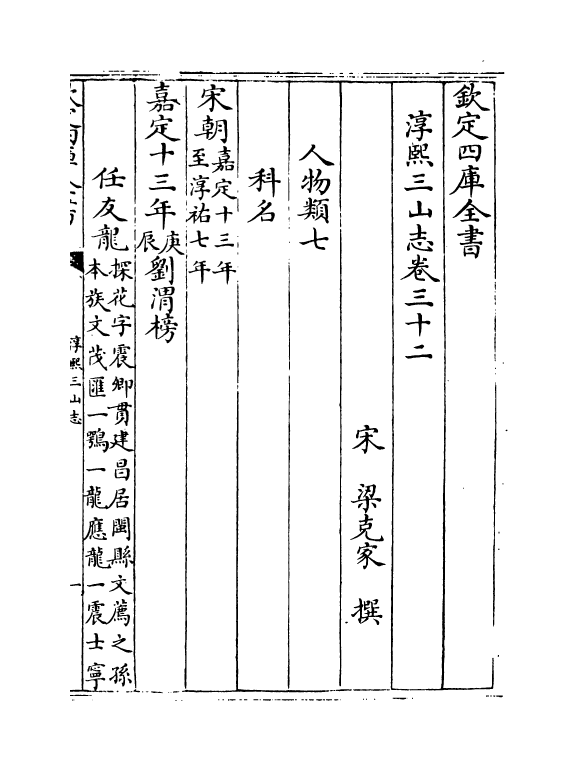 欽定四庫全書
淳熙三山志卷三十二
宋 梁克家 撰
人物類七
科名
宋朝嘉定十三年
至淳祐七年
嘉定十三年庚
辰劉渭榜
任友龍探花字震卿貫建昌居閩縣文薦之孫
本族文茂匯一鶚一龍應龍一震士寧
淳熙三山志
一